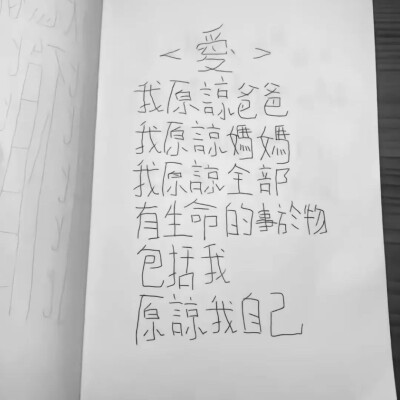 <愛>
我原諒爸爸
我原諒媽媽
我原諒全部
有生命的事於物
包括我
原諒我自己